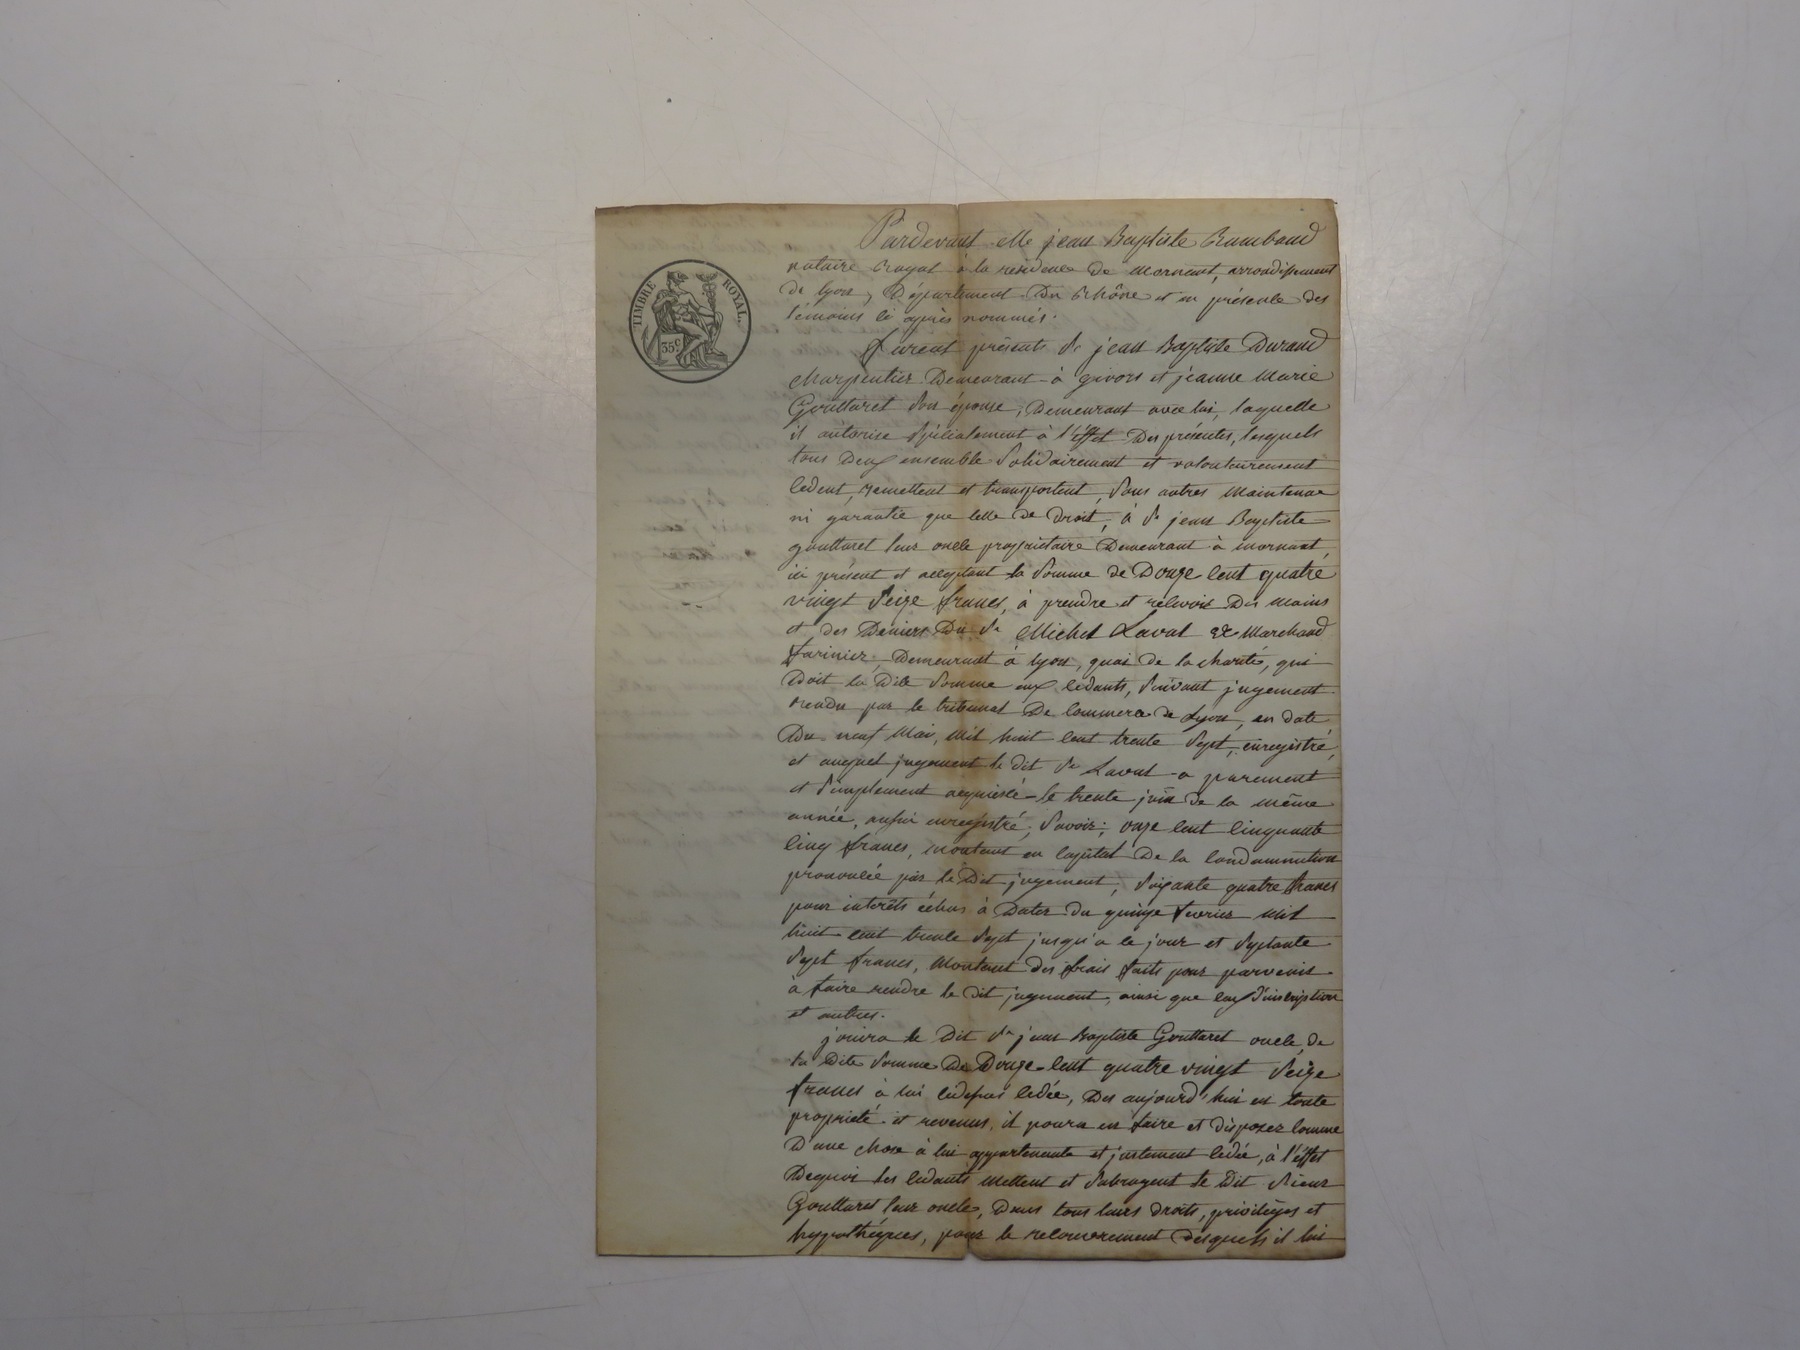 TIMBRE ROYAL.
35c
Pardevant Me jean Baptiste Rambaud
notaire Royal à la résidence de Mornant, arrondissement
de lyon, Département Du Rhône et en présence des
témoins ci après nommés.
furent présents Sr jean Baptiste Durand
charpentier Demeurant à givors et jeanne Marie
Gouttaret son épouse, Demeurant avec lui, laquelle
il autorise spécialement à l'éffet Des présentes, lesquels
tous Deux ensemble solidairement et volontairement
cedent, remettent et transportent, sans autres Maintenue
ni garantie que celle de droit, à Sr jean Baptiste
gouttaret leur oncle propriétaire Demeurant à mornant,
ici présent et acceptant la somme de Douze cent quatre
vingt seize francs, à prendre et recevoir Des mains
et des Deniers Du Sr Michel Laval ex Marchand
farinier, Demeurant à lyon, quai de la charité, qui
Doit la Dite somme aux cedants, suivant jugement
rendu par le tribunal De Commerce de Lyon, en date
Du neuf Mai, Mil huit cent trente sept, enregistré,
et auquel jugement le dit Sr Laval a purement
et simplement acquiescé le trente juin de la même
année, aussi enregistré; savoir; onze cent cinquante
cinq francs, montant en capital De la condamnation
prononcée par le Dit jugement, soixante quatre francs
pour intérêts échus à Dater du quinze fevrier Mil
huit cent trente sept jusqu'a ce jour et septante
sept francs, Montant des frais faits pour parvenir
a faire rendre le dit jugement, ainsi que ceux d'inscription
et autres.
jouira le Dit Sr jean Baptiste Gouttaret oncle, de
la Dite somme De Douze cent quatre vingt seize
francs à lui cidessus cedée, Des aujourd'hui en toute
propriété et revenus, il poura en faire et disposer comme
D'une chose à lui appartenante et justement cedée, à l'éffet
Dequoi les cedants Mettent et subrogent le Dit sieur
Gouttaret leur oncle, Dans tous leurs droits, privilèges et
hypothéques, pour le recouvrement desquels il lui